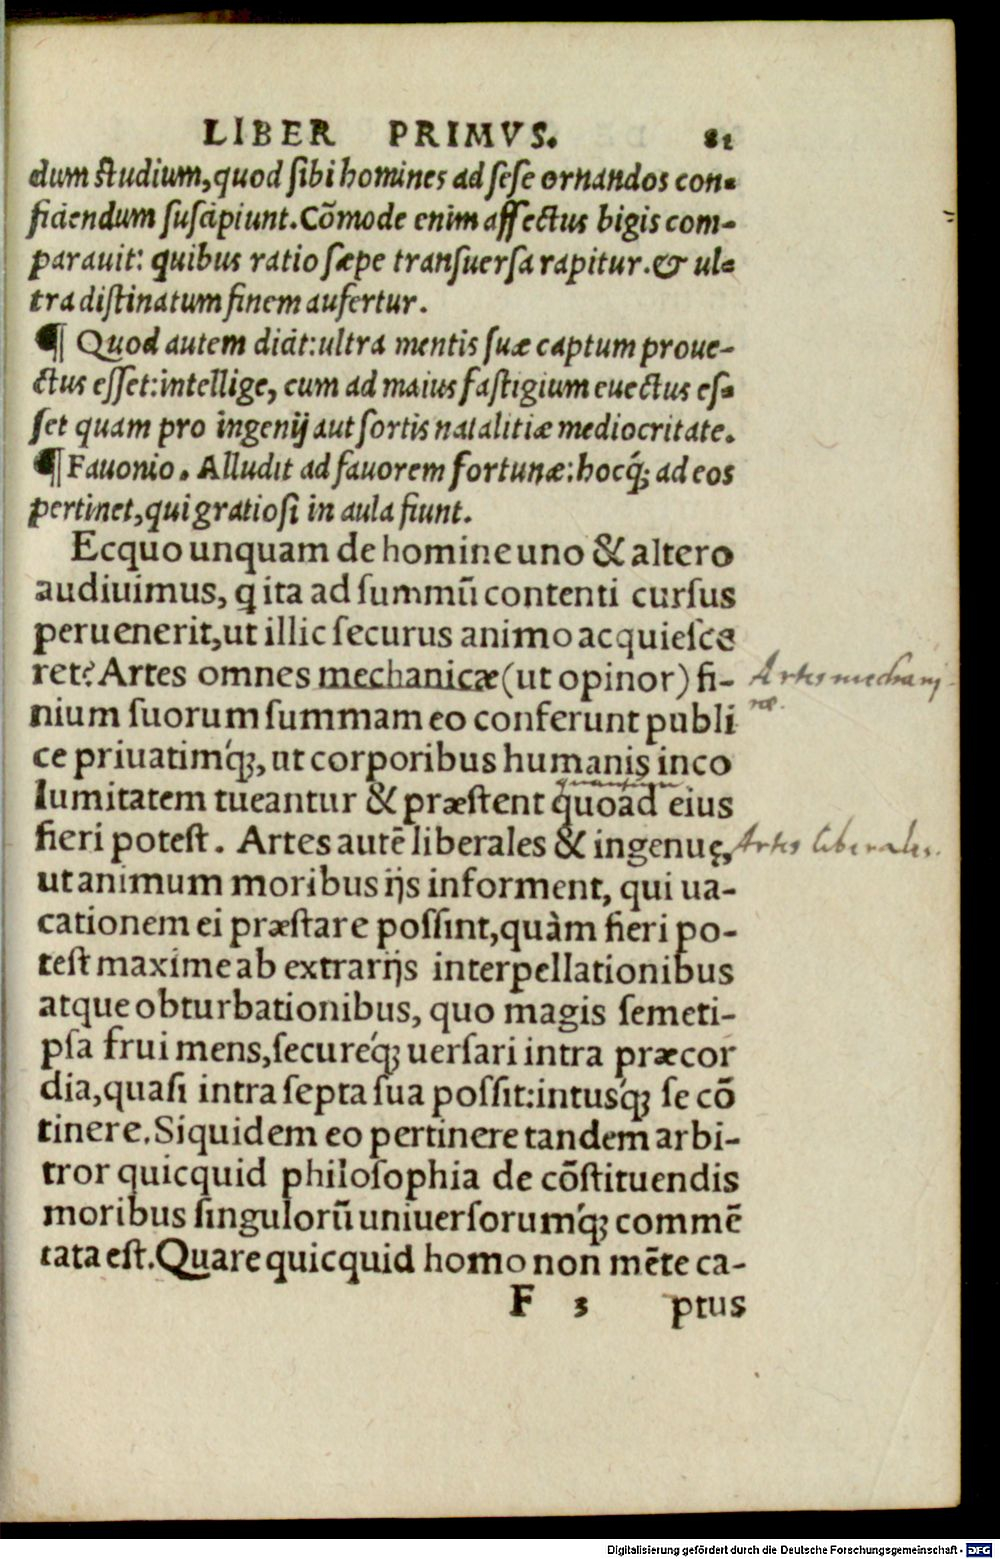 LIBER PRIMVS. 81
dum ſtudium, quod ſibi homines ad ſeſe ornandos con-
ficiendum ſuſcipiunt. Cõmode enim affectus bigis com-
parauit: quibus ratio ſæpe tranſuerſa rapitur. & ul-
tra diſtinatum finem aufertur.
¶ Quod autem dicit: ultra mentis ſuæ captum proue-
ctus eſſet: intellige, cum ad maius faſtigium euectus eſ-
ſet quam pro ingenij aut ſortis natalitiæ mediocritate.
¶ Fauonio. Alludit ad fauorem fortunæ: hocq́; ad eos
pertinet, qui gratioſi in aula fiunt.
Ecquo unquam de homine uno & altero
audiuimus, q ita ad ſummũ contenti curſus
peruenerit, ut illic ſecurus animo acquieſce
ret? Artes omnes mechanicæ (ut opinor) fi-
Artes mechani
cæ.
nium ſuorum ſummam eo conferunt publi
ce priuatimq́;, ut corporibus humanis inco
quantum
lumitatem tueantur & præſtent quoad eius
fieri poteſt. Artes autẽ liberales & ingenuę,
Artes liberales.
ut animum moribus ijs informent, qui ua-
cationem ei præſtare poſſint, quàm fieri po-
teſt maxime ab extrarijs interpellationibus
atque obturbationibus, quo magis ſemeti-
pſa frui mens, ſecureq́; uerſari intra præcor
dia, quaſi intra ſepta ſua poſſit: intusq́; ſe cõ
tinere. Siquidem eo pertinere tandem arbi-
tror quicquid philoſophia de cõſtituendis
moribus ſingulorũ uniuerſorumq́; commẽ
tata eſt. Quare quicquid homo non mẽte ca-
F 3 ptus
Digitalisierung gefördert durch die Deutsche Forschungsgemeinschaft - DFG